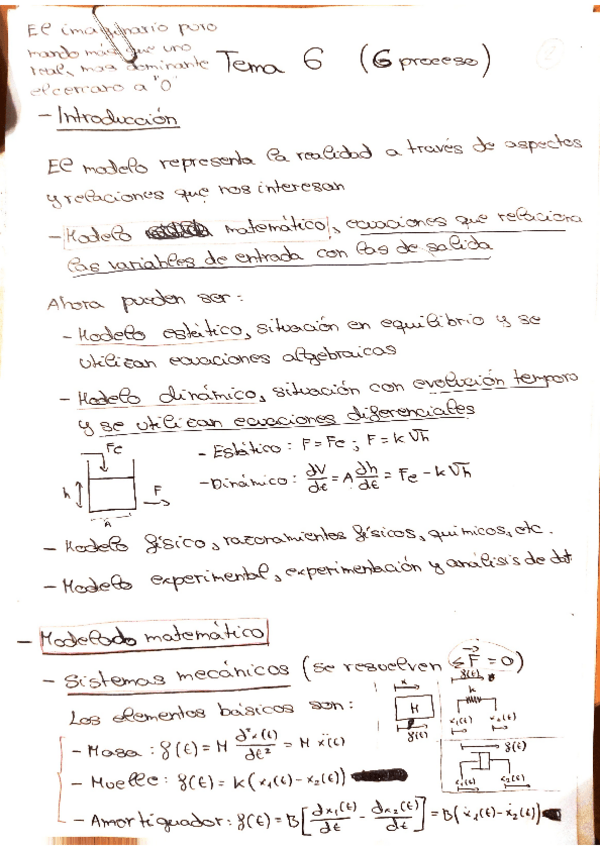 El imaginario puro
mando más que uno
real, mas dominante
el cercano a "0"
Tema 6 (G proceso)
2
- Introducción
El modelo representa la realidad a través de aspectos
y relaciones que nos interesan
- Modelo matemático, ecuaciones que relaciona
las variables de entrada con las de salida
Ahora pueden ser:
- Modelo estático, situación en equilibrio y se
utilizan ecuaciones algebraicas
- Modelo dinámico, situación con evolución tempora
y se utilizan ecuaciones diferenciales
Fe
h
F
A
- Estático: F = Fe ; F = k√h
- Dinámico: dV/dt = A dh/dt = Fe - k√h
- Modelo físico, razonamientos físicos, químicos, etc.
- Modelo experimental, experimentación y análisis de dat
- Modelado matemático
- Sistemas mecánicos (se resuelven ≤F⃗ = 0)
Los elementos básicos son:
x
M
f(t)
f(t)
k
x₁(t) x₂(t)
- Masa: f(t) = M d²x(t)/dt² = M ẍ(t)
- Muelle: f(t) = k(x₁(t) - x₂(t))
f(t)
x₁(t) x₂(t)
- Amortiguador: f(t) = B[dx₁(t)/dt - dx₂(t)/dt] = B(ẋ₁(t) - ẋ₂(t))